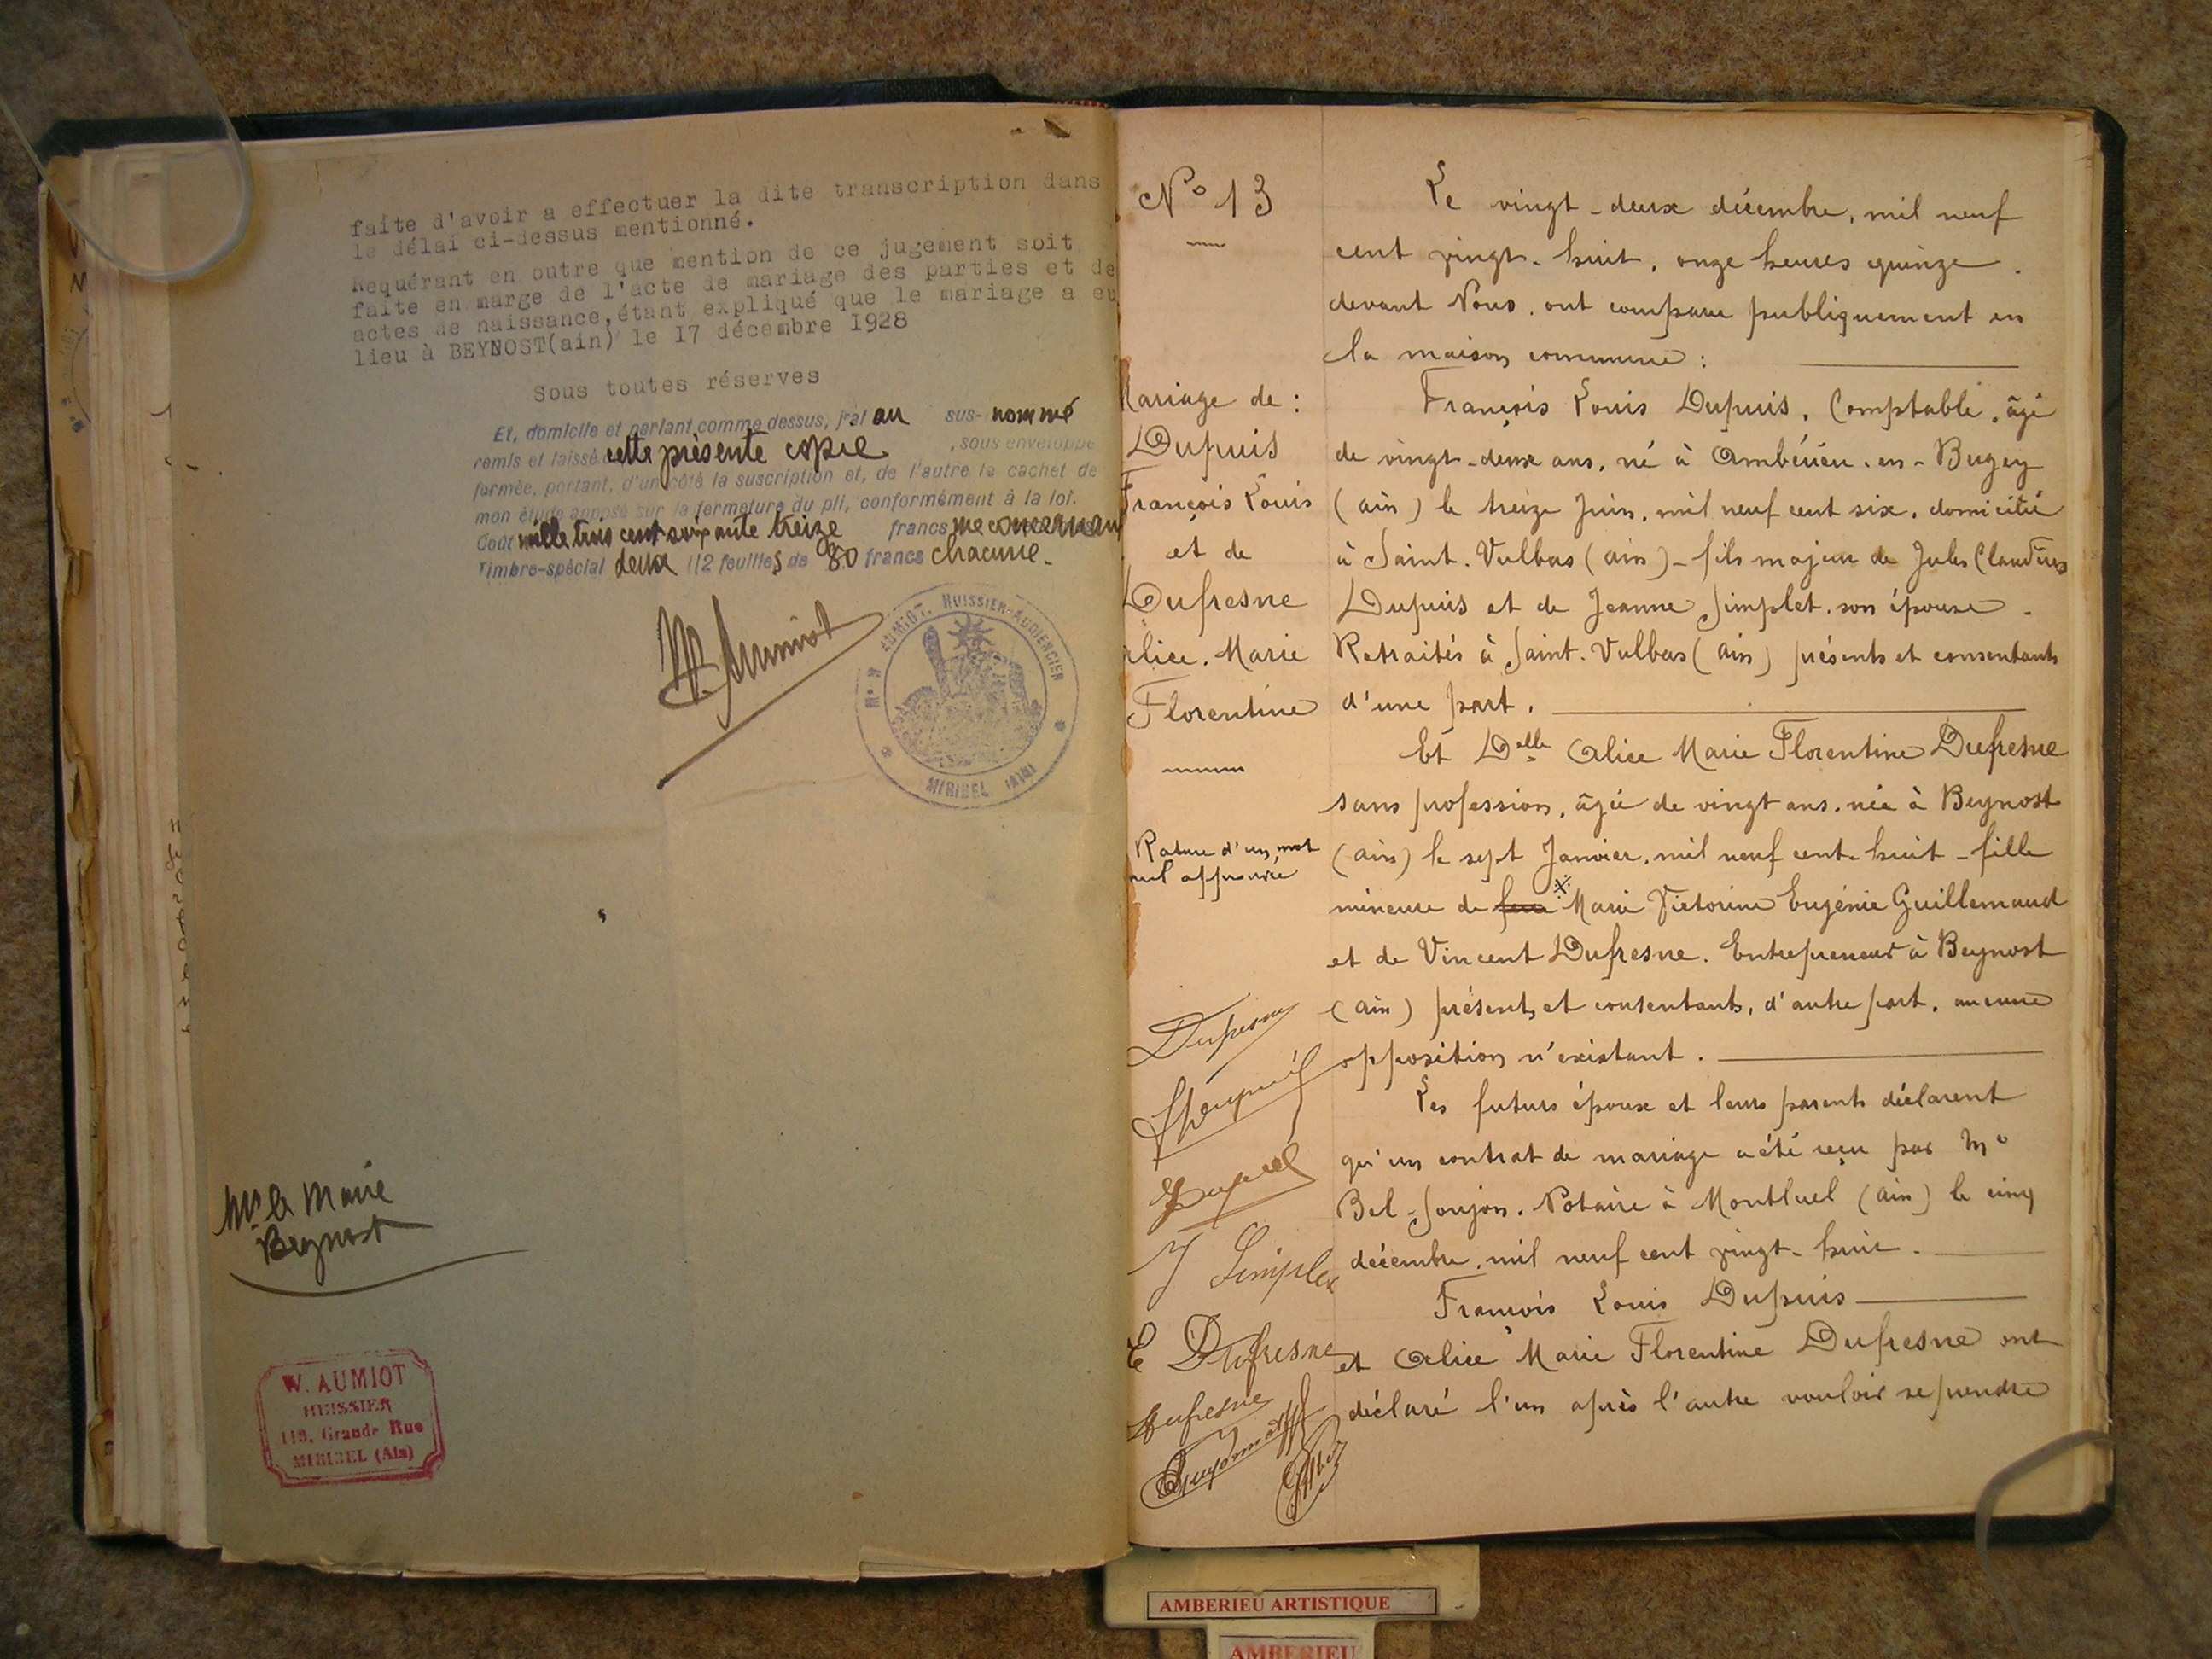 faite d'avoir a effectuer la dite transcription dans
le délai ci-dessus mentionné.
Requérant en outre que mention de ce jugement soit
faite en marge de l'acte de mariage des parties et de
actes de naissance,étant expliqué que le mariage a eu
lieu à BEYNOST(ain) le 17 décembre 1928
Sous toutes réserves
Et, domicile et parlant comme dessus, j'ai au sus-nommé
remis et laissé cette présente copie, sous enveloppe
fermée, portant, d'un côté la suscription et, de l'autre le cachet de
mon étude apposé sur la fermeture du pli, conformément à la loi.
Coût mille trois cent soixante treize francs me concernan
Timbre-spécial deux 1/2 feuilles de 80 francs chacune.
W. Aumiot
AUMIOT, HUISSIER-AUDIENCIER
MIRIBEL (AIN)
Mr le Maire
Beynost
W. AUMIOT
HUISSIER
119, Grande Rue
MIRIBEL (Ain)
N° 13
Mariage de :
Dupuis
François Louis
et de
Dufresne
Alice. Marie
Florentine
Rature d'un mot
nul approuvée
Le vingt-deux décembre, mil neuf
cent vingt-huit, onze heures quinze.
devant Nous, ont comparu publiquement en
la maison commune :
François Louis Dupuis, Comptable, âgé
de vingt-deux ans, né à Ambérieu-en-Bugey
(ain) le treize Juin, mil neuf cent six, domicilié
à Saint-Vulbas (ain) - fils majeur de Jules Claudius
Dupuis et de Jeanne Simplet, son épouse.
Retraités à Saint-Vulbas (ain) présents et consentants
d'une part.
Et Delle Alice Marie Florentine Dufresne
sans profession, âgée de vingt ans, née à Beynost
(ain) le sept Janvier, mil neuf cent-huit - fille
mineure de feue Marie Victorine Eugénie Guillemaud
et de Vincent Dufresne, Entrepreneur à Beynost
(ain) présents et consentants, d'autre part, aucune
opposition n'existant.
Les futurs époux et leurs parents déclarent
qu'un contrat de mariage a été reçu par Me
Bel-Soujon, Notaire à Montluel (ain) le cinq
décembre, mil neuf cent vingt-huit.
François Louis Dupuis
et Alice Marie Florentine Dufresne ont
déclaré l'un après l'autre vouloir se prendre
Dufresne
J Simplet
E Dufresne
Dufresne
AMBERIEU ARTISTIQUE
AMBERIEU